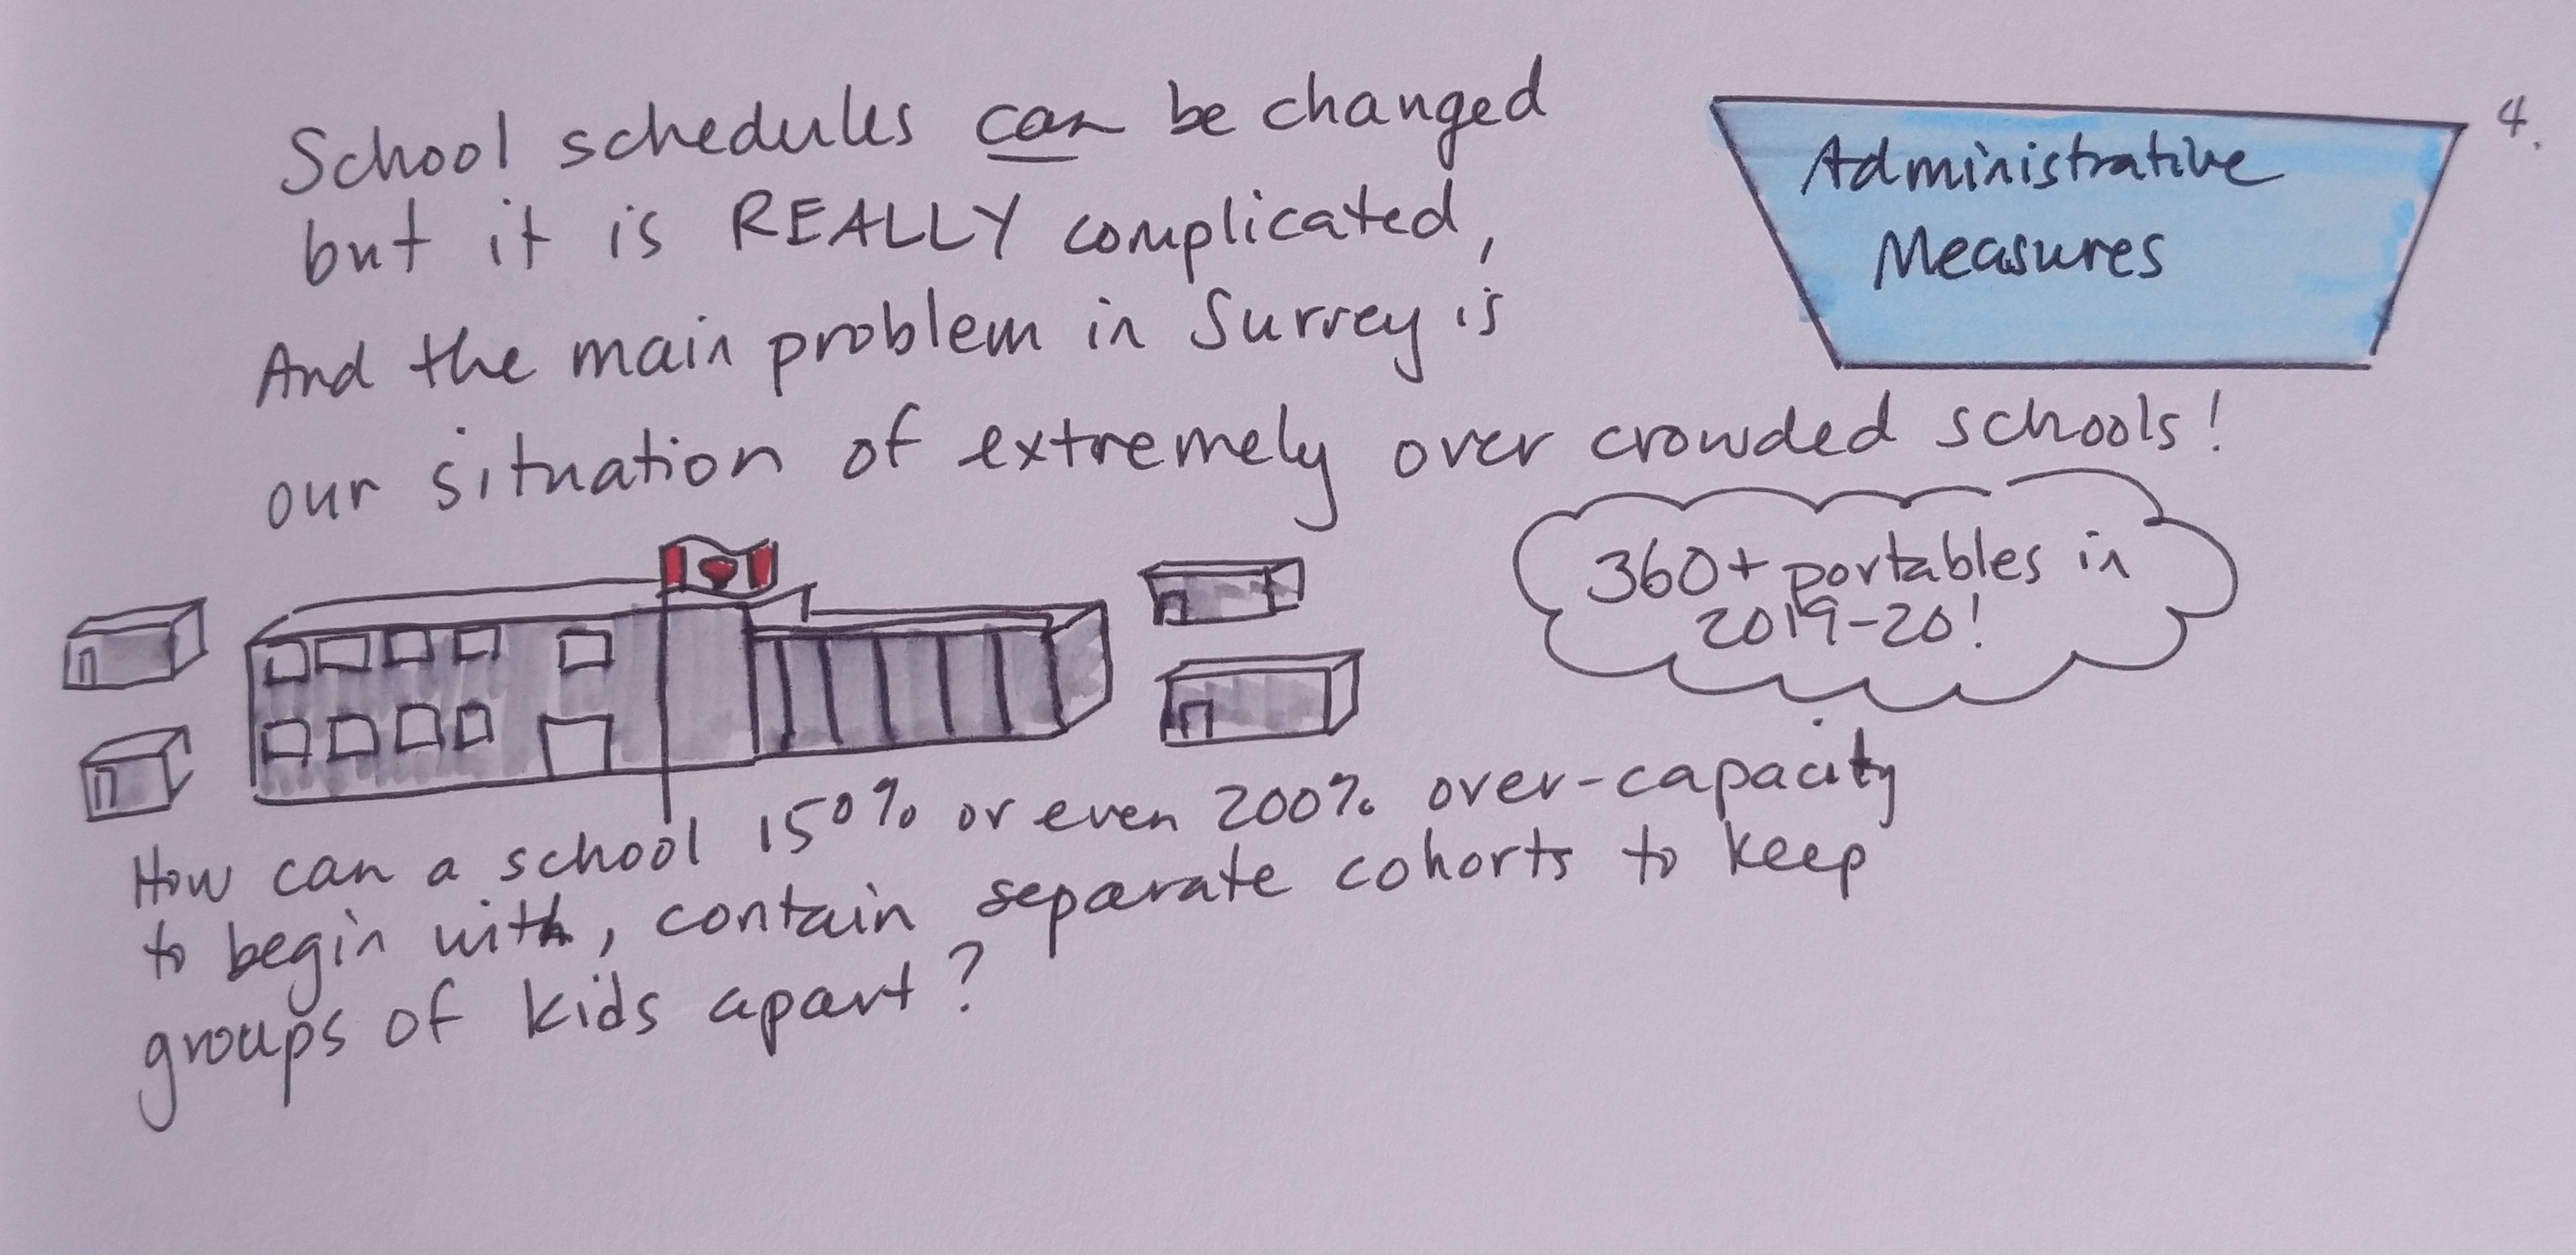 School schedules can be changed
but it is REALLY complicated,
And the main problem in Surrey is
our situation of extremely over crowded schools!
Administrative
Measures
4.
360+ portables in
2019-20!
How can a school 150% or even 200% over-capacity
to begin with, contain separate cohorts to keep
groups of kids apart?